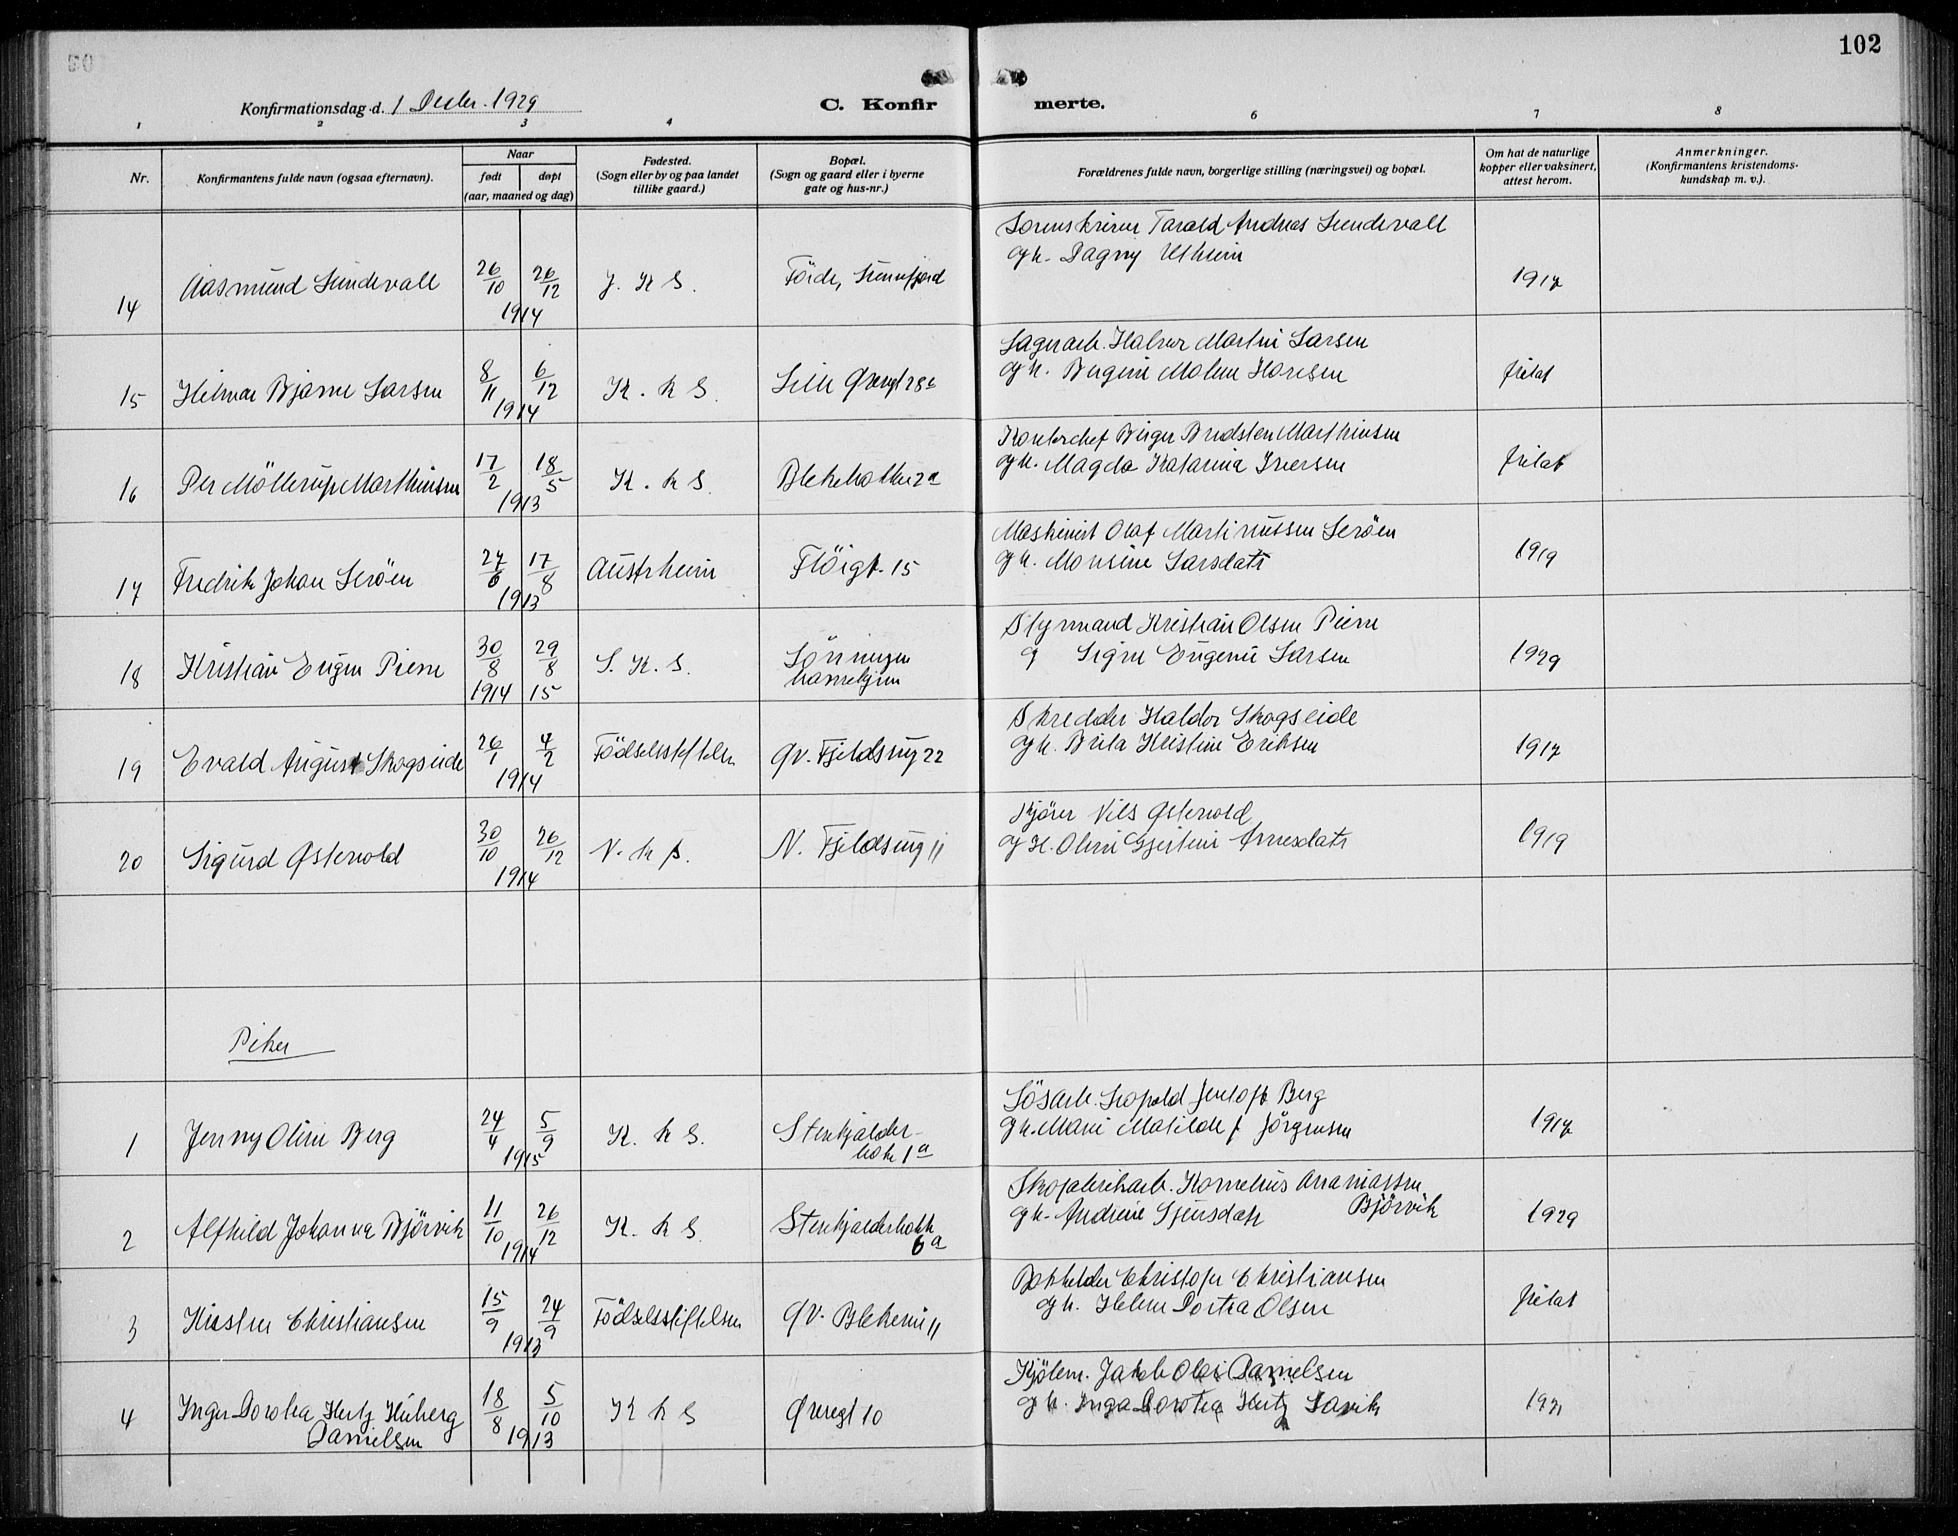 102
Konfirmationsdag d. 1 Desbr. 1929
C. Konfir merte.
1 2 3 4 6 7 8
Nr.
Konfirmantens fulde navn (ogsaa efternavn).
Naar
født døpt
(aar, maaned og dag)
Fødested.
(Sogn eller by og paa landet
tillike gaard.)
Bopæl.
(Sogn og gaard eller i byerne
gate og hus-nr.)
Forældrenes fulde navn, borgerlige stilling (næringsvei) og bopæl.
Om hat de naturlige
kopper eller vaksinert,
attest herom.
Anmerkninger.
(Konfirmantens kristendoms-
kundskap m. v.).
Sorenskriver Tarald Andreas Sundevall
14 Aasmund Sundevall 26/10 26/12 J. K S. Förde, Sunnfjord og h. Dagny Utheim 1917
1914
Lagerarb. Halvor Martin Larsen
15 Hilmar Bjarne Larsen 8/11 6/12 K. k S. Lille Øvregt 28 og h. Bergine Malene Hansen frilat
1914
Kontorchef Birger Bredsten Marthinsen
16 Per Möllerup Marthinsen 17/2 18/5 K. k S. Blekebakken 2a og h. Magda Katarina Iversen frilat
1913
Maskinist Olaf Martinussen Leröen
17 Fredrik Johan Leröen 27/6 17/8 Austrheim Flöigt. 15 og h. Monsine Larsdatr 1919
1913
Styrmand Kristian Olsen Piene
18 Kristian Eugen Piene 30/8 29/8 S. K. S. og Signe Eugenie Larsen 1929
1914 15 barnehjem
Skredder Haldor Skogseide
19 Evald August Skogseide 26/1 4/2 Födselsstiftelsen Øv. Fjeldsmug 22 og h. Brita Kristine Eriksen 1917
1914
Kjörer Nils Østervold
20 Sigurd Østervold 30/10 26/12 N. k p. N. Fjeldsmug 11 og H. Oline Gjertine Arnesdatr 1919
1914
Piker
Lösarb. Leopold Jentoft Berg
1 Jenny Oline Berg 24/4 5/9 K. k S. Stenkjælder- og h. Marie Matilde f Jörgensen 1917
1915 bakk 1a
Skofabrikarb. Kornelius Ananiassen
2 Alfhild Johanna Björvik 11/10 26/12 K. k S. Stenkjælderbakk og h. Andrine Sjursdatr Björvik 1929
1914 6a
Bokholder Christofer Christiansen
3 Kirsten Christiansen 15/9 24/9 Födselsstiftelsen Øv. Blekevei 11 og h. Helene Dortea Olsen frilat
1913
Kjölem. Jakob Olai Danielsen
4 Inger Dorotea Hertz Huberg 18/8 5/10 K k S Øvregt 10 og h. Inga Dorotea Hertz Larvik 1921
Danielsen 1913